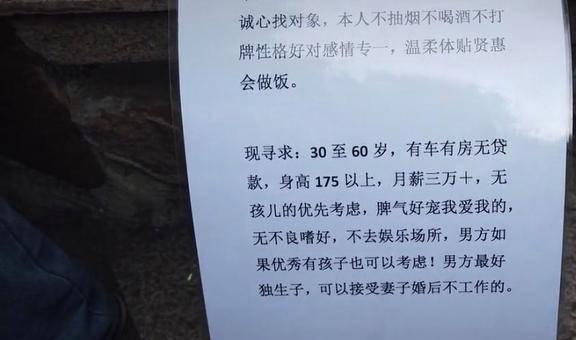 诚心找对象，本人不抽烟不喝酒不打
牌性格好对感情专一，温柔体贴贤惠
会做饭。
现寻求：30 至 60 岁，有车有房无贷
款，身高 175 以上，月薪三万＋，无
孩儿的优先考虑，脾气好宠我爱我的，
无不良嗜好，不去娱乐场所，男方如
果优秀有孩子也可以考虑！男方最好
独生子，可以接受妻子婚后不工作的。